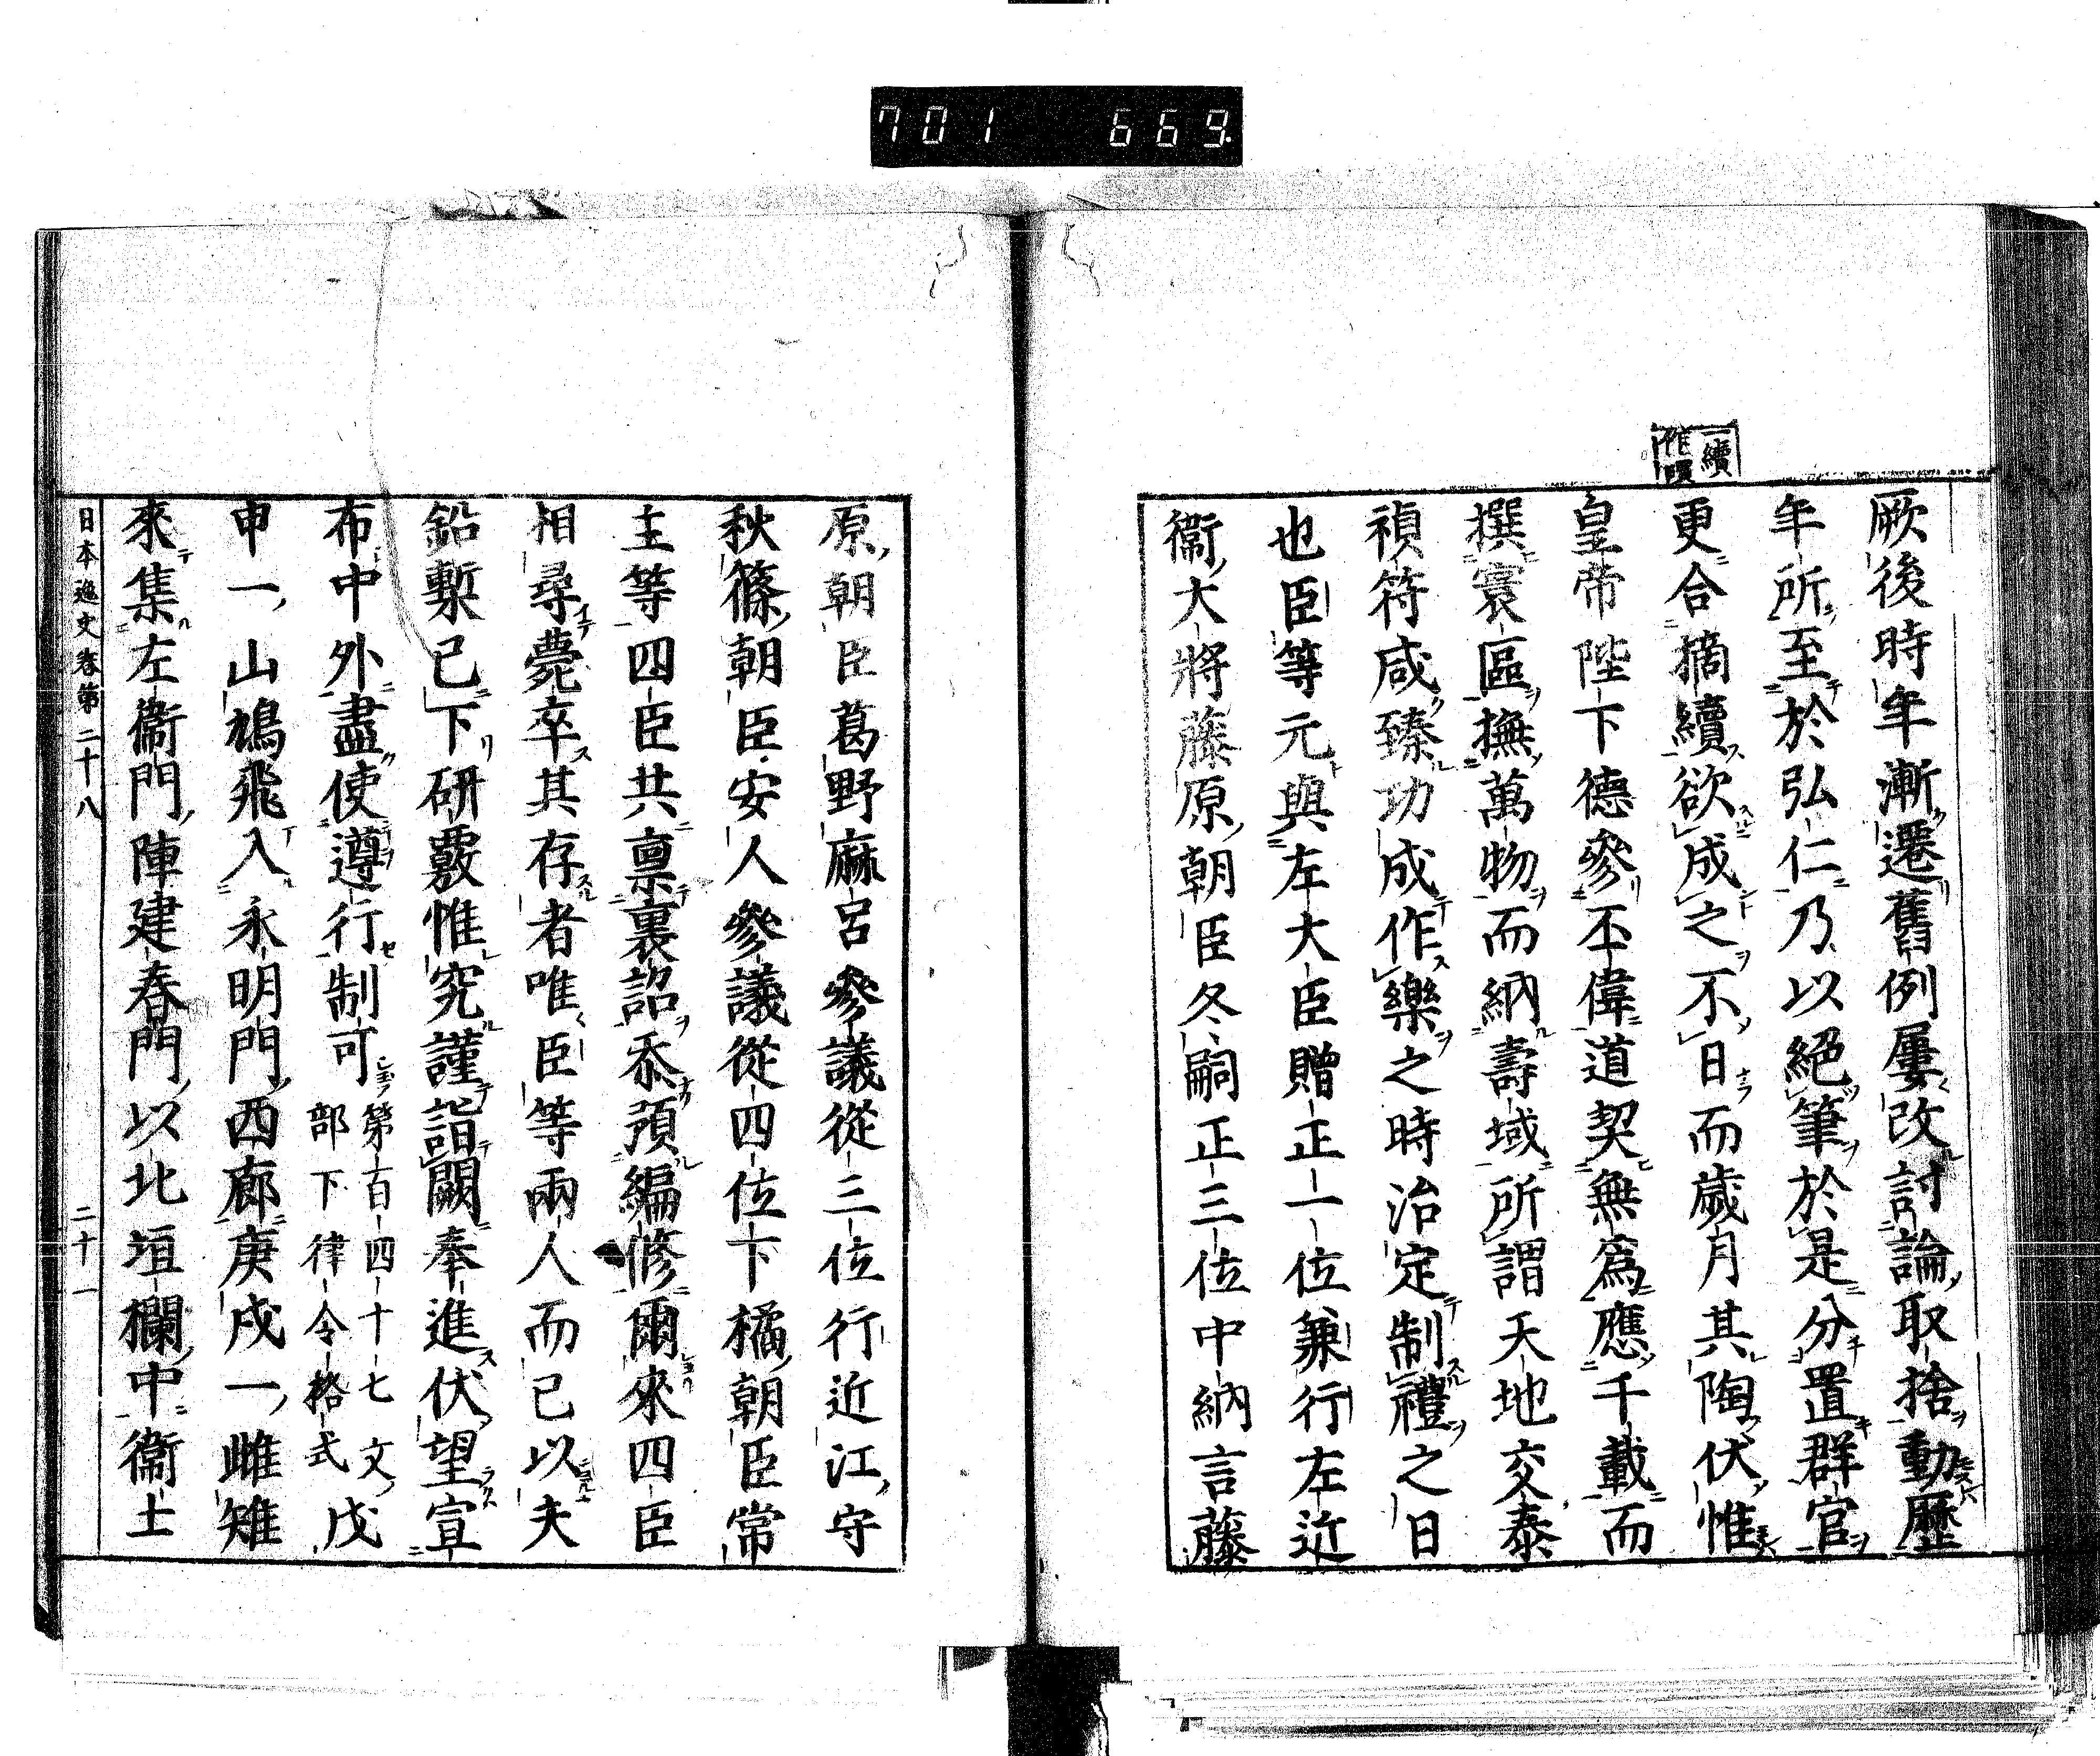 701 669
續一
作賾
厥後時年漸遷舊例屢改討論取捨動歷
年所至於弘仁乃以絕筆於是分置群官
更合摘續欲成之不日而歲月其陶伏惟
皇帝陛下德參不偉道契無爲應千載而
撰寰區撫萬物而納壽域所謂天地交泰
禎符咸臻功成作樂之時治定制禮之日
也臣等元與左大臣贈正一位兼行左近
衞大將藤原朝臣冬嗣正三位中納言藤
原朝臣葛野麻呂參議從三位行近江守
秋篠朝臣安人參議從四位下橘朝臣常
主等四臣共禀裏詔忝預編修爾來四臣
相尋薨卒其存者唯臣等兩人而已以夫
鉛槧已下研覈惟究謹詣闕奉進伏望宣
布中外盡使遵行制可第百四十七文部下律令格式戊
申一山鵐飛入永明門西廊庚戌一雌雉
來集左衞門陣建春門以北垣欄中衞士
日本逸史卷第二十八 二十一